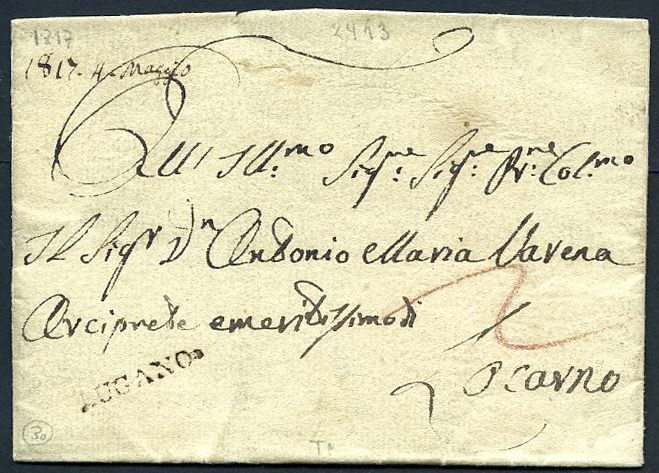 1817 2413
1817. 4. Maggio
All Ill:mo Sig:re Sig:re P:ne Col:mo
Il Sigr Dn Antonio Maria Varena
Arciprete emeritissimo di
Locarno
LUGANO
30